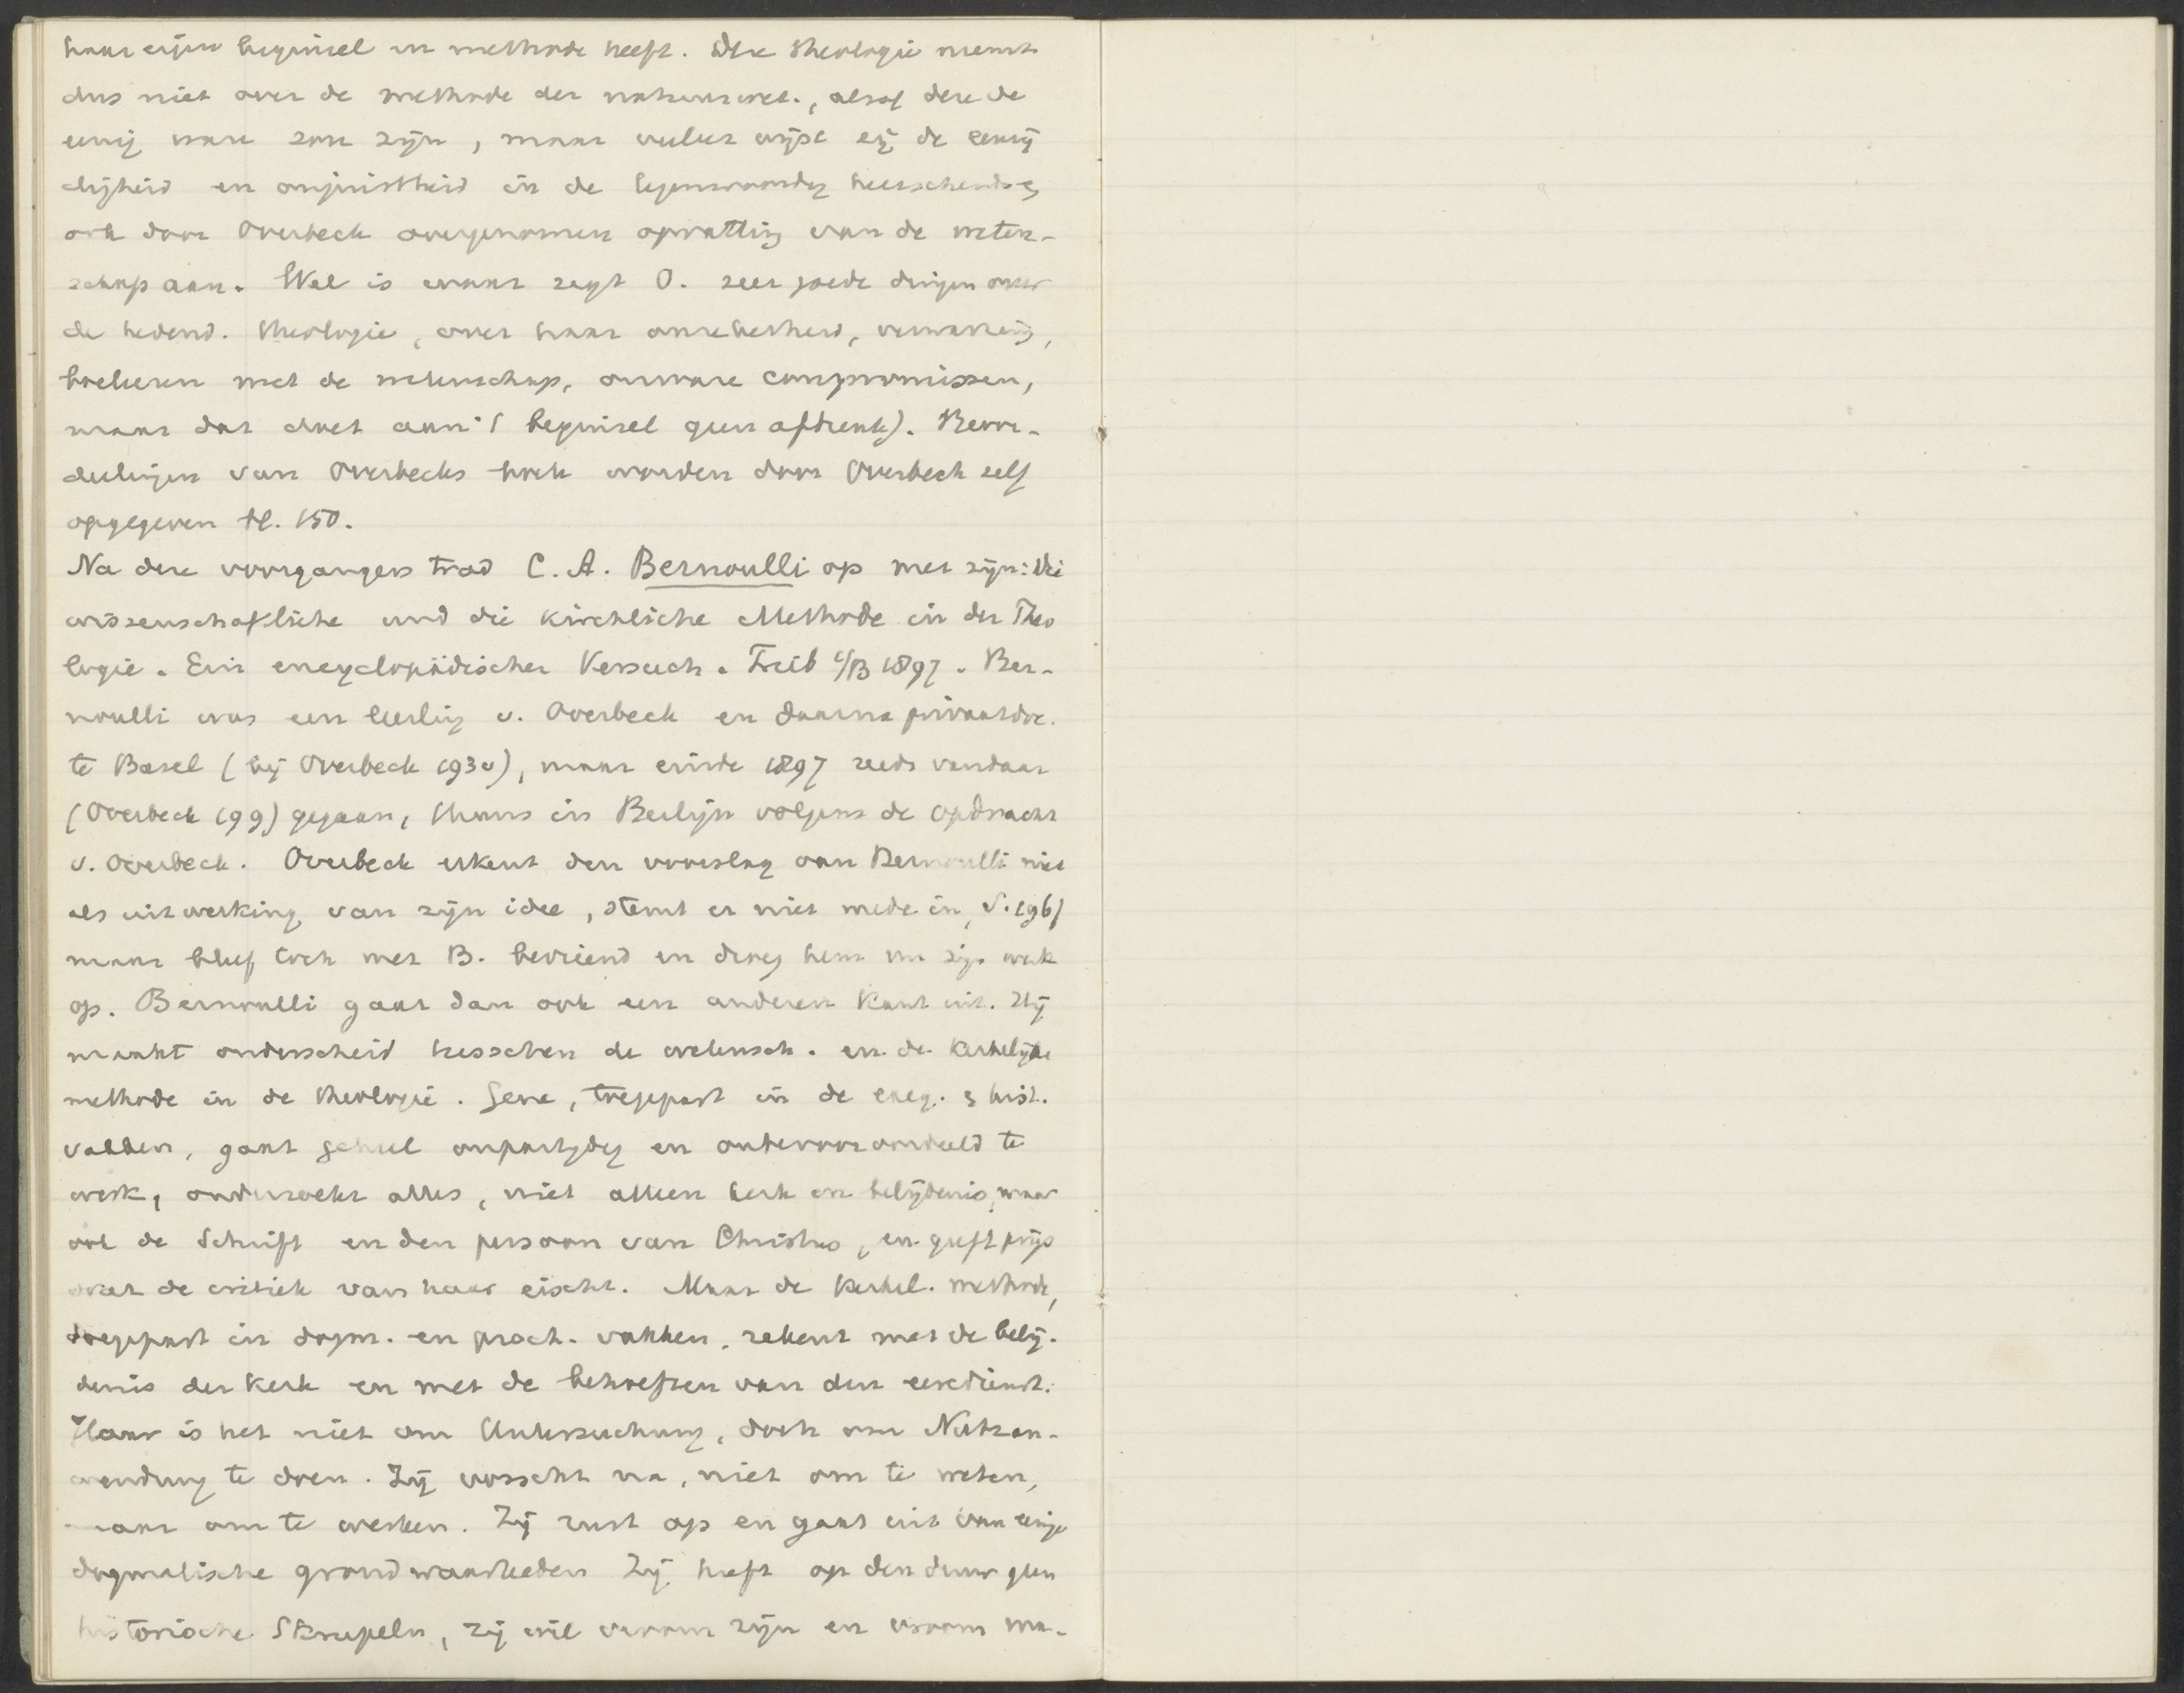 haar eigen beginsel en methode heeft. Die theologie neemt
dus niet over de methode der natuurwet., alsof deze de
eenig ware zou zijn, maar veeleer wijst zij de eenzij
digheid en onjuistheid in de tegenwoordig heerschende &
ook door Overbeck overgenomen opvatting van de weten-
schap aan. Wel is waar zegt O. zeer goede dingen over
de hedend. theologie, over haar onzekerheid, verwarring,
boeleeren met de wetenschap, onware compromissen,
maar dat doet aan 't beginsel geen afbreuk). Beoor-
deelingen van Overbecks boek worden door Overbeck zelf
opgegeven bl. 150.
Na deze voorgangers trad C. A. Bernoulli op met zijn: Die
wissenschaftliche und die kirchliche Methode in der Theo
logie. Ein encyclopädischer Versuch. Freib i/B 1897. Ber-
noulli was een leerling v. Overbeck en daarna privaatdoc.
te Basel (bij Overbeck 193 v), maar einde 1897 reeds vandaar
(Overbeck 199) gegaan, thans in Berlijn volgens de opdracht
v. Overbeck. Overbeck erkent den voorslag van Bernoulli niet
als uitwerking van zijn idee, stemt er niet mede in, S. 196)
maar bleef toch met B. bevriend en droeg hem zijn werk
op. Bernoulli gaat dan ook een anderen kant uit. Hij
maakt onderscheid tusschen de wetensch. en de kerkelijke
methode in de theologie. Gene, toegepast in de exeg. & hist.
vakken, gaat geheel onpartijdig en onbevooroordeeld te
werk, onderzoekt alles, niet alleen kerk en belijdenis, maar
ook de Schrift en den persoon van Christus, en geeft prijs
wat de critiek van haar eischt. Maar de kerkel. methode,
toegepast in dogm. en pract. vakken, rekent met de belij-
denis der kerk en met de behoeften van den eeredienst.
Haar is het niet om Untersuchung, doch om Nutzan-
wendung te doen. Zij vorscht na, niet om te weten,
maar om te werken. Zij rust op en gaat uit van eenige
dogmatische grondwaarheden Zij heeft op den duur geen
historische Skrupeln, zij wil vroom zijn en vroom ma-